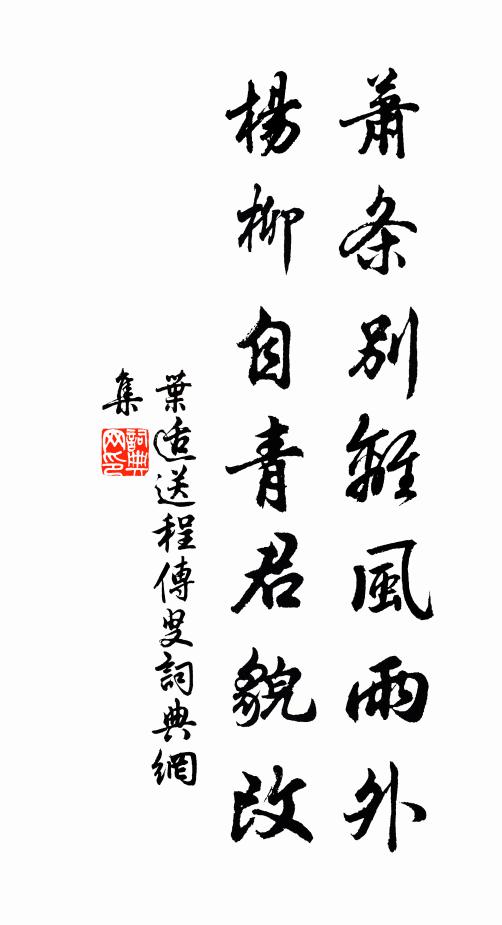 蕭条別離風雨外
楊柳自青君貌改
葉適送程傳叟詞典網
集
詞典
网印